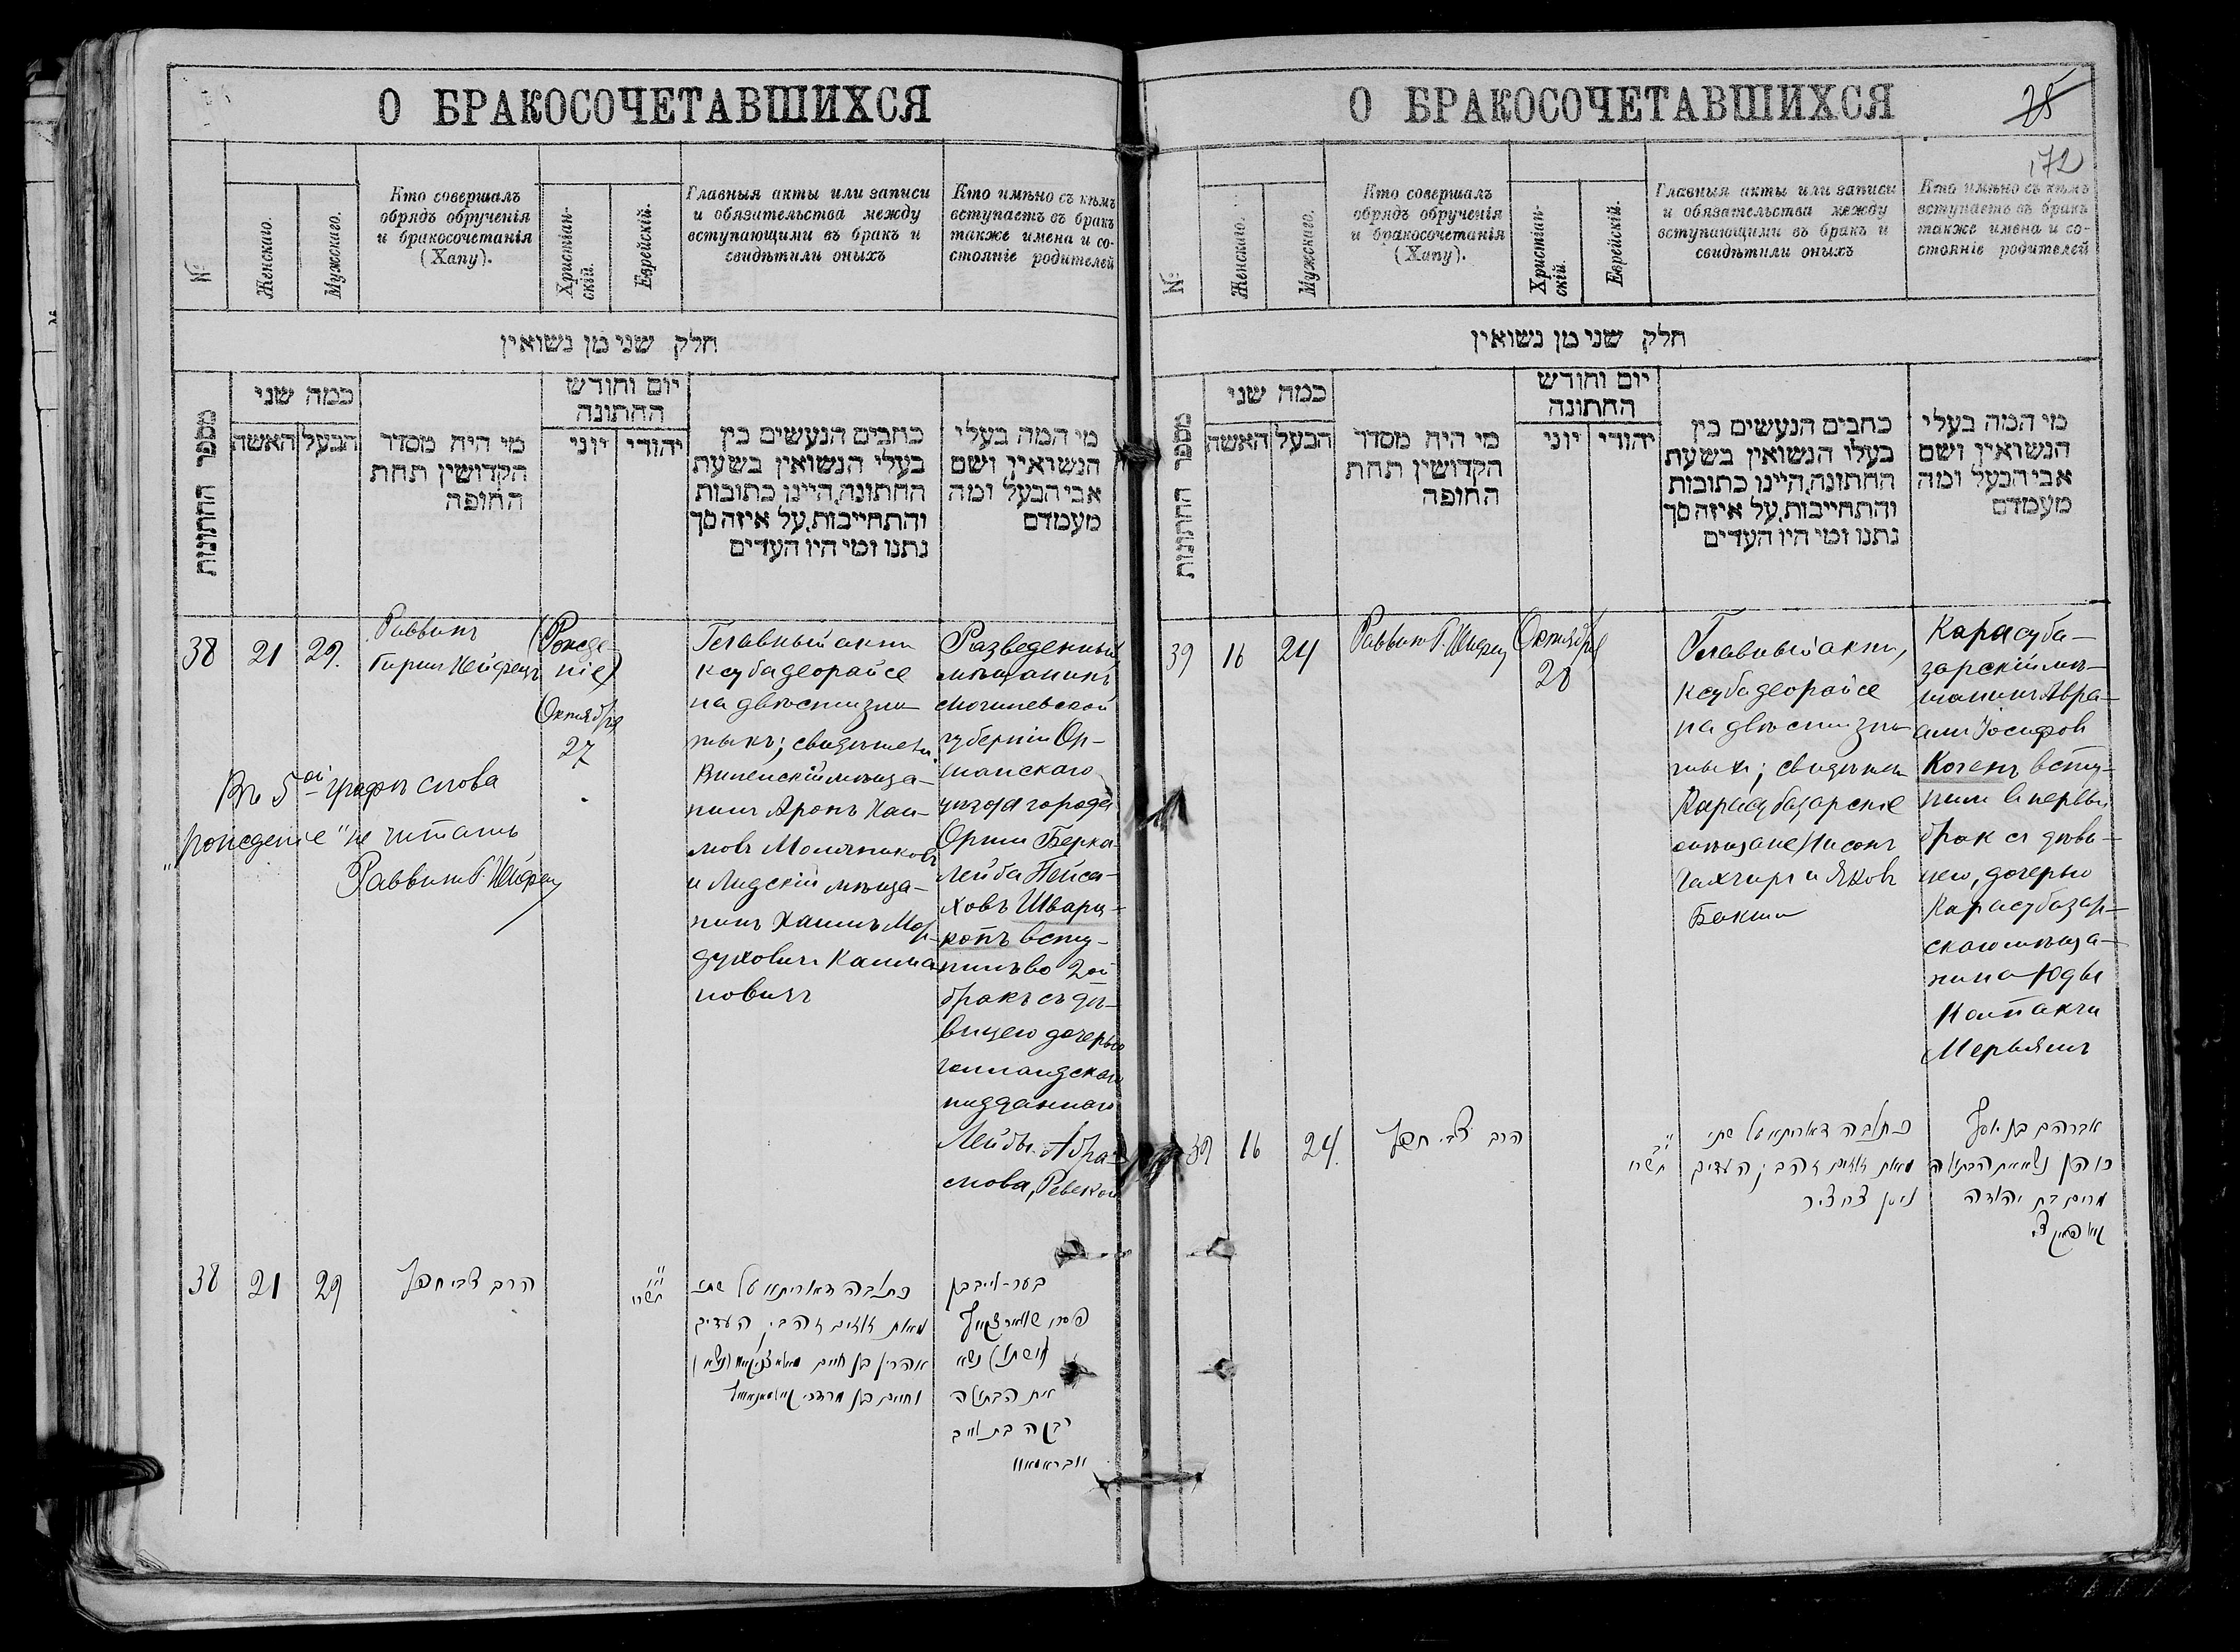 О БРАКОСОЧЕТАВШИХСЯ
№
Женскаго.
Мужскаго.
Кто совершалъ
обрядъ обрученія
и бракосочетанія
(Хапу).
Христіан-
скій.
Еврейскій.
Главныя акты или записи
и обязательства между
вступающими въ бракъ и
свидѣтили оныхъ
Кто имѣно съ кѣмъ
вступаетъ въ бракъ
также имена и со-
стояніе родителей
חלק שני מן נשואין
מספר החתונות
כמה שני
האשה
הבעל
מי היה מסדר
הקדושין תחת
החופה
יום וחודש
החתונה
יוני
יהודי
כתבים הנעשים בין
בעלי הנשואין בשעת
החתונה,היינו כתובות
והתחייבות,על איזה סך
נתנו ומי היו העדים
מי המה בעלי
הנשואין ושם
אבי הבעל ומה
מעמדם
38
21
29.
Раввинъ
Гиршъ Хейфецъ
(Рожде-
ніе)
Октября
27
Главный актъ
ксуба деорайсе
на двѣсти зло-
тыхъ; свидѣтели
Виленскій мѣща-
нинъ Аронъ Хаи-
мовъ
и Лидскій мѣща-
нинъ Хаимъ Мор-
духовичъ Калма-
новичъ
Разведенный
мѣщанинъ
Могилевской
губерніи Ор-
шанскаго
уѣзда города
Орши Берка-
Лейба Пейса-
ховъ Шварц-
копъ всту-
пилъ во 2ой
бракъ съ дѣ-
вицею дочерью
голландскаго
подданнаго
Лейбы Абра-
мова, Ревекой
Въ 5ой графѣ слова
„рожденіе" не читать
Раввинъ Г. Хейфец
38
21
29
הרב צבי חפץ
תשרי
כתובה דאוריתא על שתי
מאות זוזים זהבים העדים
אהרן בן חיים
וחיים בן מרדכי
בער-לייב בן
פסח שווארצקאפ
נשא
את הבתולה
רבקה בת לייב
О БРАКОСОЧЕТАВШИХСЯ
25
172
№
Женскаго.
Мужскаго.
Кто совершалъ
обрядъ обрученія
и бракосочетанія
(Хапу).
Христіан-
скій.
Еврейскій.
Главныя акты или записи
и обязательства между
вступающими въ бракъ и
свидѣтили оныхъ
Кто имѣно съ кѣмъ
вступаетъ въ бракъ
также имена и со-
стояніе родителей
חלק שני מן נשואין
מספר החתונות
כמה שני
האשה
הבעל
מי היה מסדר
הקדושין תחת
החופה
יום וחודש
החתונה
יוני
יהודי
כתבים הנעשים בין
בעלי הנשואין בשעת
החתונה,היינו כתובות
והתחייבות,על איזה סך
נתנו ומי היו העדים
מי המה בעלי
הנשואין ושם
אבי הבעל ומה
מעמדם
39
16
24
Раввинъ Г. Хейфец
Октября
28
Главный актъ,
ксуба деорайсе
на двѣсти зло-
тыхъ; свидѣтели
Карасубазарскіе
мѣщане Нисонъ
и Яковъ
Бакши
Карасуба-
зарскій мѣ-
щанинъ Авра-
амъ Іосифовъ
Когенъ всту-
пилъ в первый
бракъ съ дѣви-
цею, дочерью
Карасубазар-
скаго мѣща-
нина Юды
Мерьямъ
39
16
24.
הרב צבי חפץ
תשרי
כתובה דאוריתא על שתי
מאות זוזים זהבים העדים
ניסן
אברהם בן יוסף
כוהן נשא את הבתולה
מרים בת יהודה